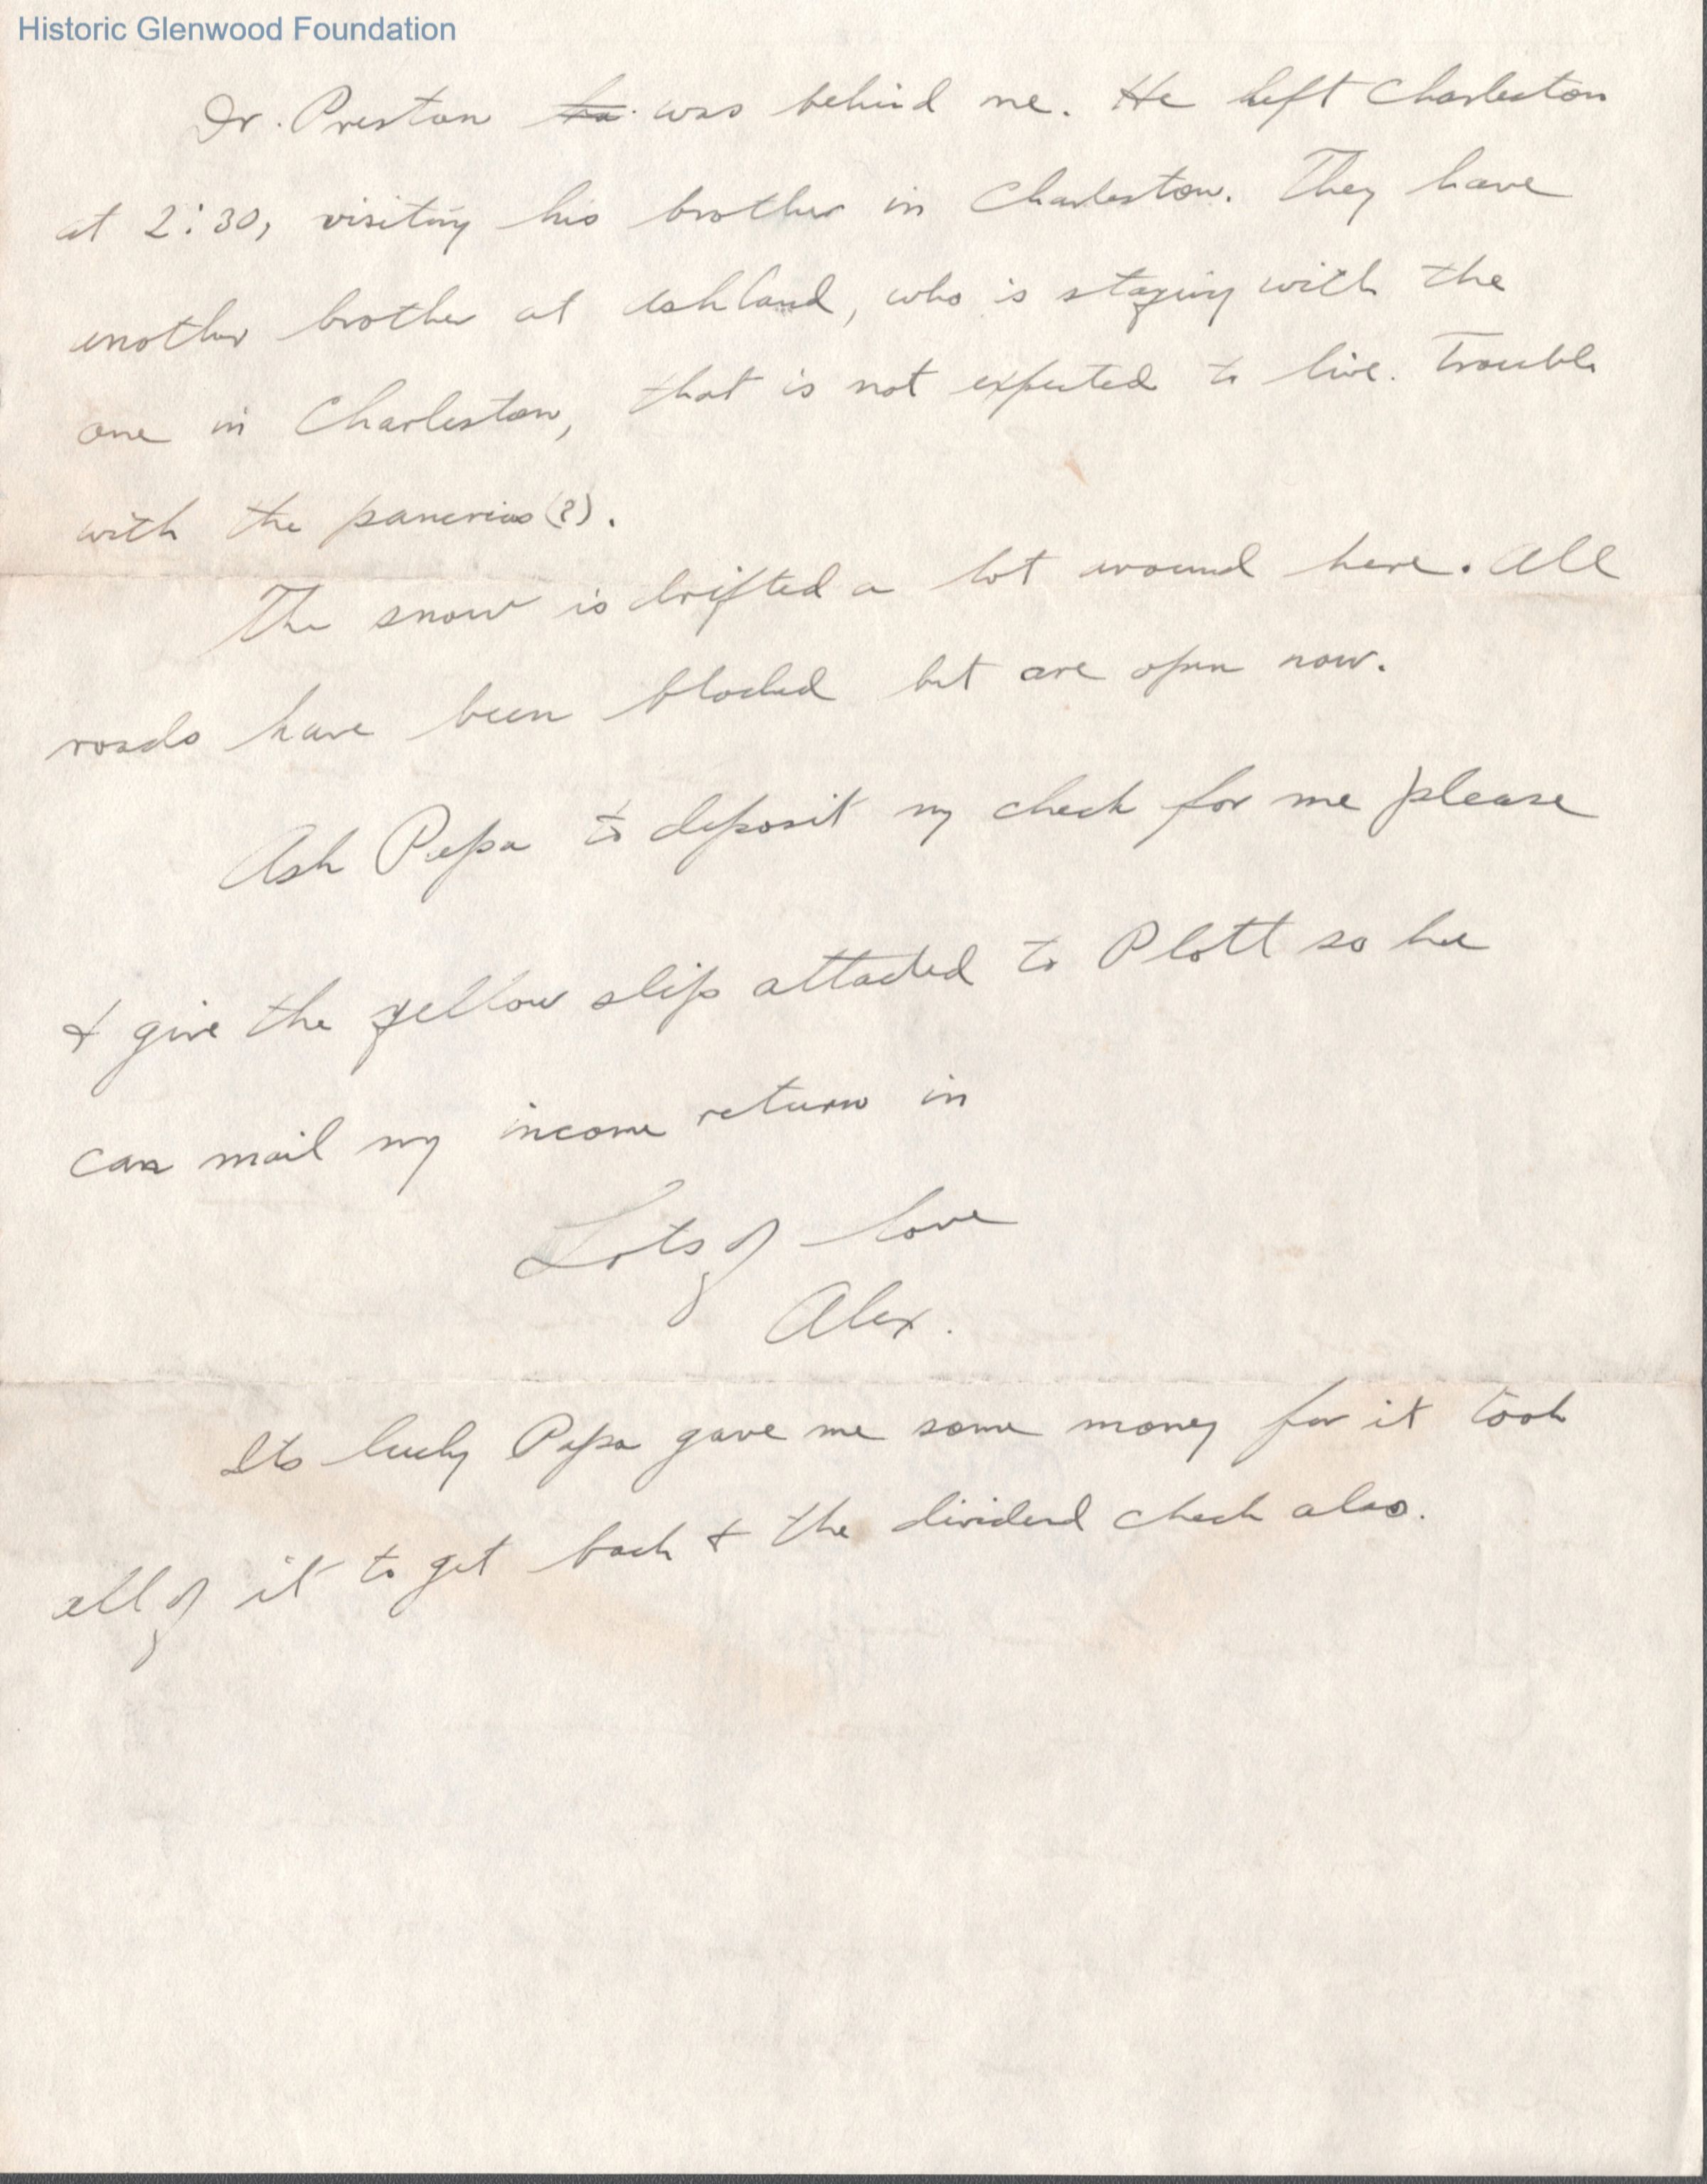 Historic Glenwood Foundation
Dr. Preston was behind me. He left Charleston
at 2:30, visiting his brother in Charleston. They have
another brother at Ashland, who is staying with the
one in Charleston, that is not expected to live. Trouble
with the pancrias (?).
The snow is drifted a lot around here. All
roads have been blocked but are open now.
Ask Papa to deposit my check for me please
& give the yellow slip attached to Plott so he
can mail my income return in
Lots of love
Alex.
Its lucky Papa gave me some money for it took
all of it to get back & the dividend check also.